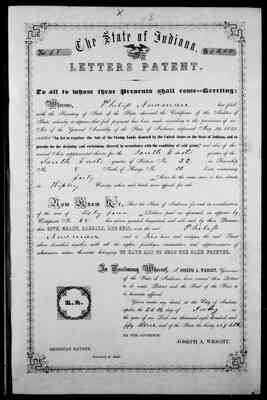 The State of Indiana,
LETTERS PATENT.
To all to whom these Presents shall come—Greeting:
Whereas, Philip Newman has filed
with the Secretary of State of the State aforesaid the Certificate of the Auditor of
State, whereby it appears that full payment has been made according to the provisions of an
Act of the General Assembly of the State of Indiana, approved May 29, 1852,
entitled "An Act to regulate the sale of the Swamp Lands donated by the United States to the State of Indiana, and to
provide for the draining and reclaiming thereof, in accordance with the condition of said grant;" and also of the
several Acts supplemental thereto, for the South East quarter of the
South East quarter of Section No. 22 in Township
No. 8 North of Range No. 10 East, containing
forty Acres be the same more or less, situate
in Ripley County, which said tract was offered for sale
Now Know Ye, That the State of Indiana, for and in consideration
of the sum of fifty five Dollars
GIVE, GRANT, BARGAIN, AND SELL, unto the said Philip
Newman and to his heirs and assigns, the said Tract
above described, together with all the rights, privileges, immunities, and appurtenances of
whatsoever nature thereunto belonging, TO HAVE AND TO HOLD THE SAME FOREVER.
In Testimony Whereof, I, JOSEPH A. WRIGHT, Governor
of the State of Indiana, have caused these Letters
to be made Patent, and the Seal of the State to
be hereunto affixed.
Given under my hand, at the City of Indiana-
polis, the
the year of our Lord, one thousand eight hundred and
fifty three and of the State the
L.S.
BY THE GOVERNOR:
JOSEPH A. WRIGHT.
Secretary of State.